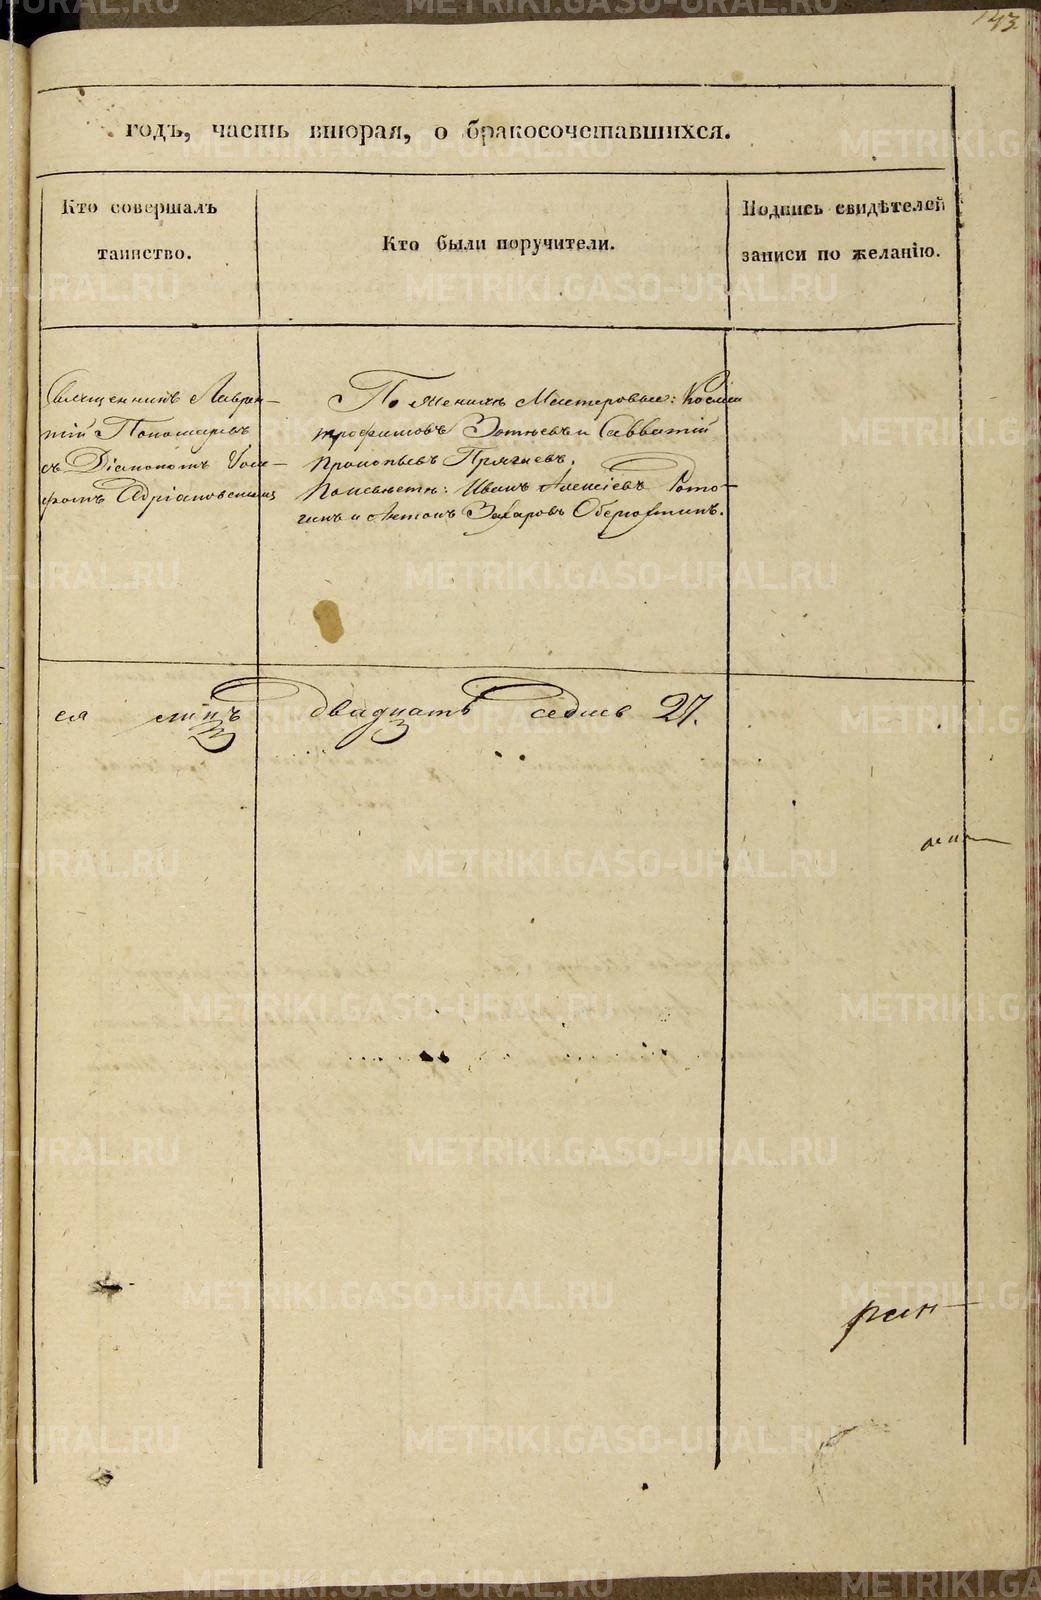 143
годъ, часть вторая, о бракосочетавшихся.
Кто совершалъ
таинство.
Кто были поручители.
Подпись свидѣтелей
записи по желанію.
Священникъ Лаврен-
тій Пономаревъ
съ Діакономъ Іоси-
фомъ Адріановскимъ
По женихѣ Мастеровые: Косма
Трофимовъ Зотѣевъ и Савватій
Прокопьевъ
По невѣстѣ: Иванъ Алексіевъ Рого-
зинъ и Антонъ Захаровъ Оберюхтинъ.
ся двадцать седмь 27.
METRIKI.GASO-URAL.RU